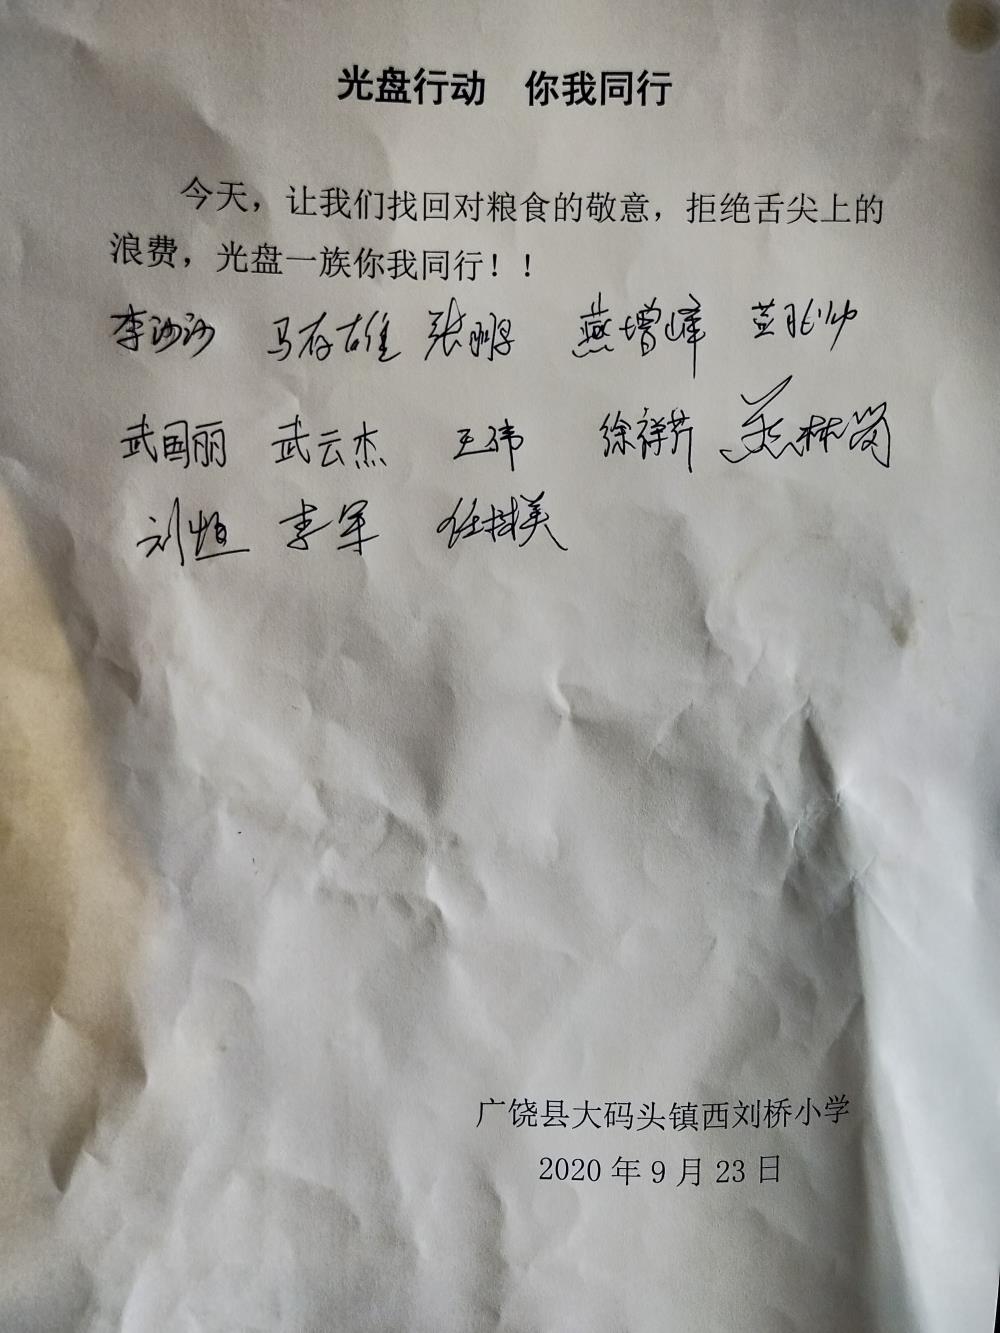 光盘行动 你我同行
今天，让我们找回对粮食的敬意，拒绝舌尖上的
浪费，光盘一族你我同行！！
李沙沙 马存雄 张鹏 燕增峰
武国丽 武云杰 王玮 徐祥芹 燕林岗
刘恒 李军 任树美
广饶县大码头镇西刘桥小学
2020 年 9 月 23 日